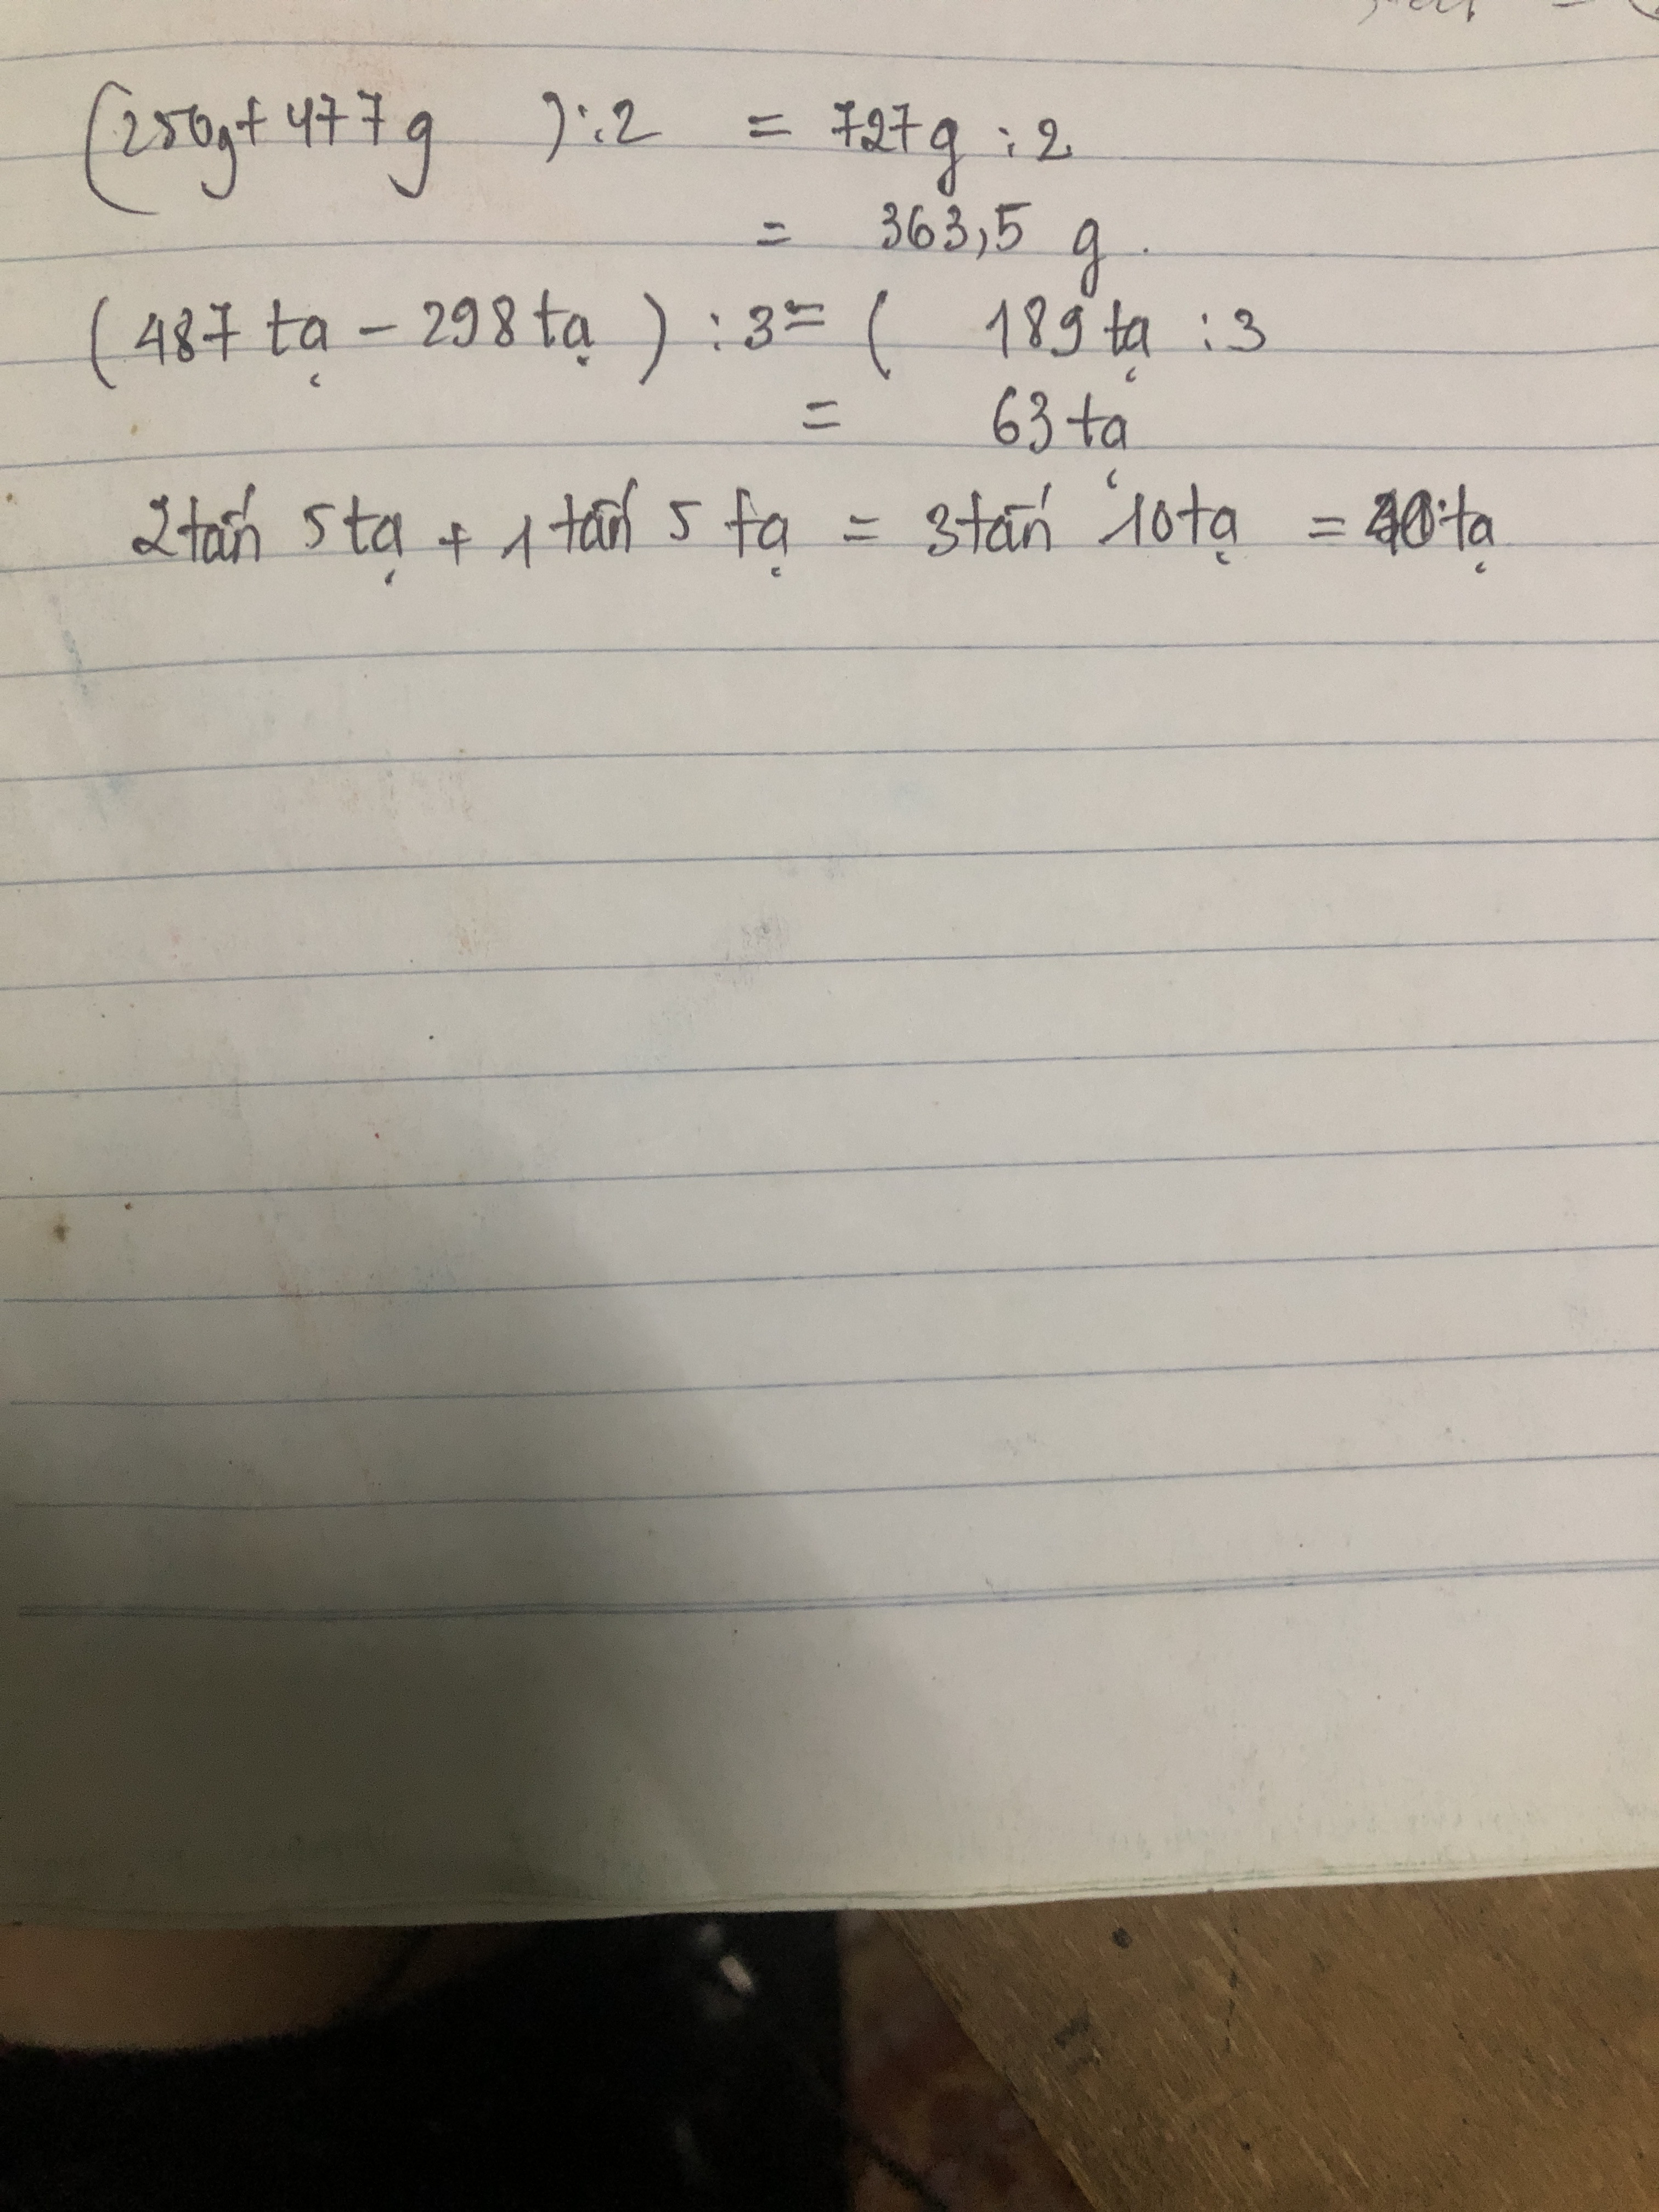 (250g + 477g ) : 2 = 727g : 2
= 363,5 g.
( 487 tạ - 298 tạ ) : 3 = ( 189 tạ : 3
= 63 tạ
2 tấn 5 tạ + 1 tấn 5 tạ = 3 tấn 10 tạ = 40 tạ